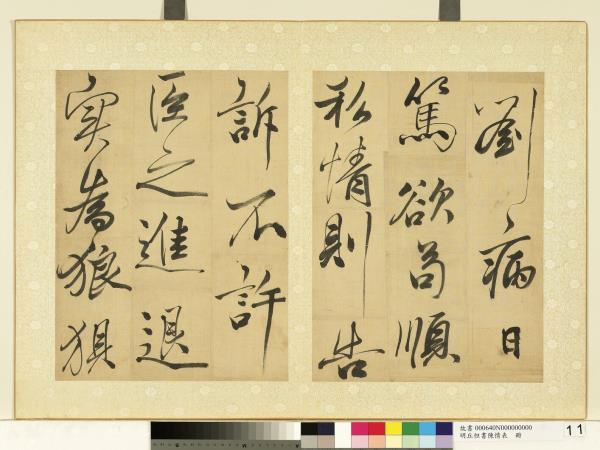 劉病日
篤欲苟順
私情則告
訴不許
臣之進退
實為狼狽
故書 000640N000000000
明丘恒書陳情表 冊
11